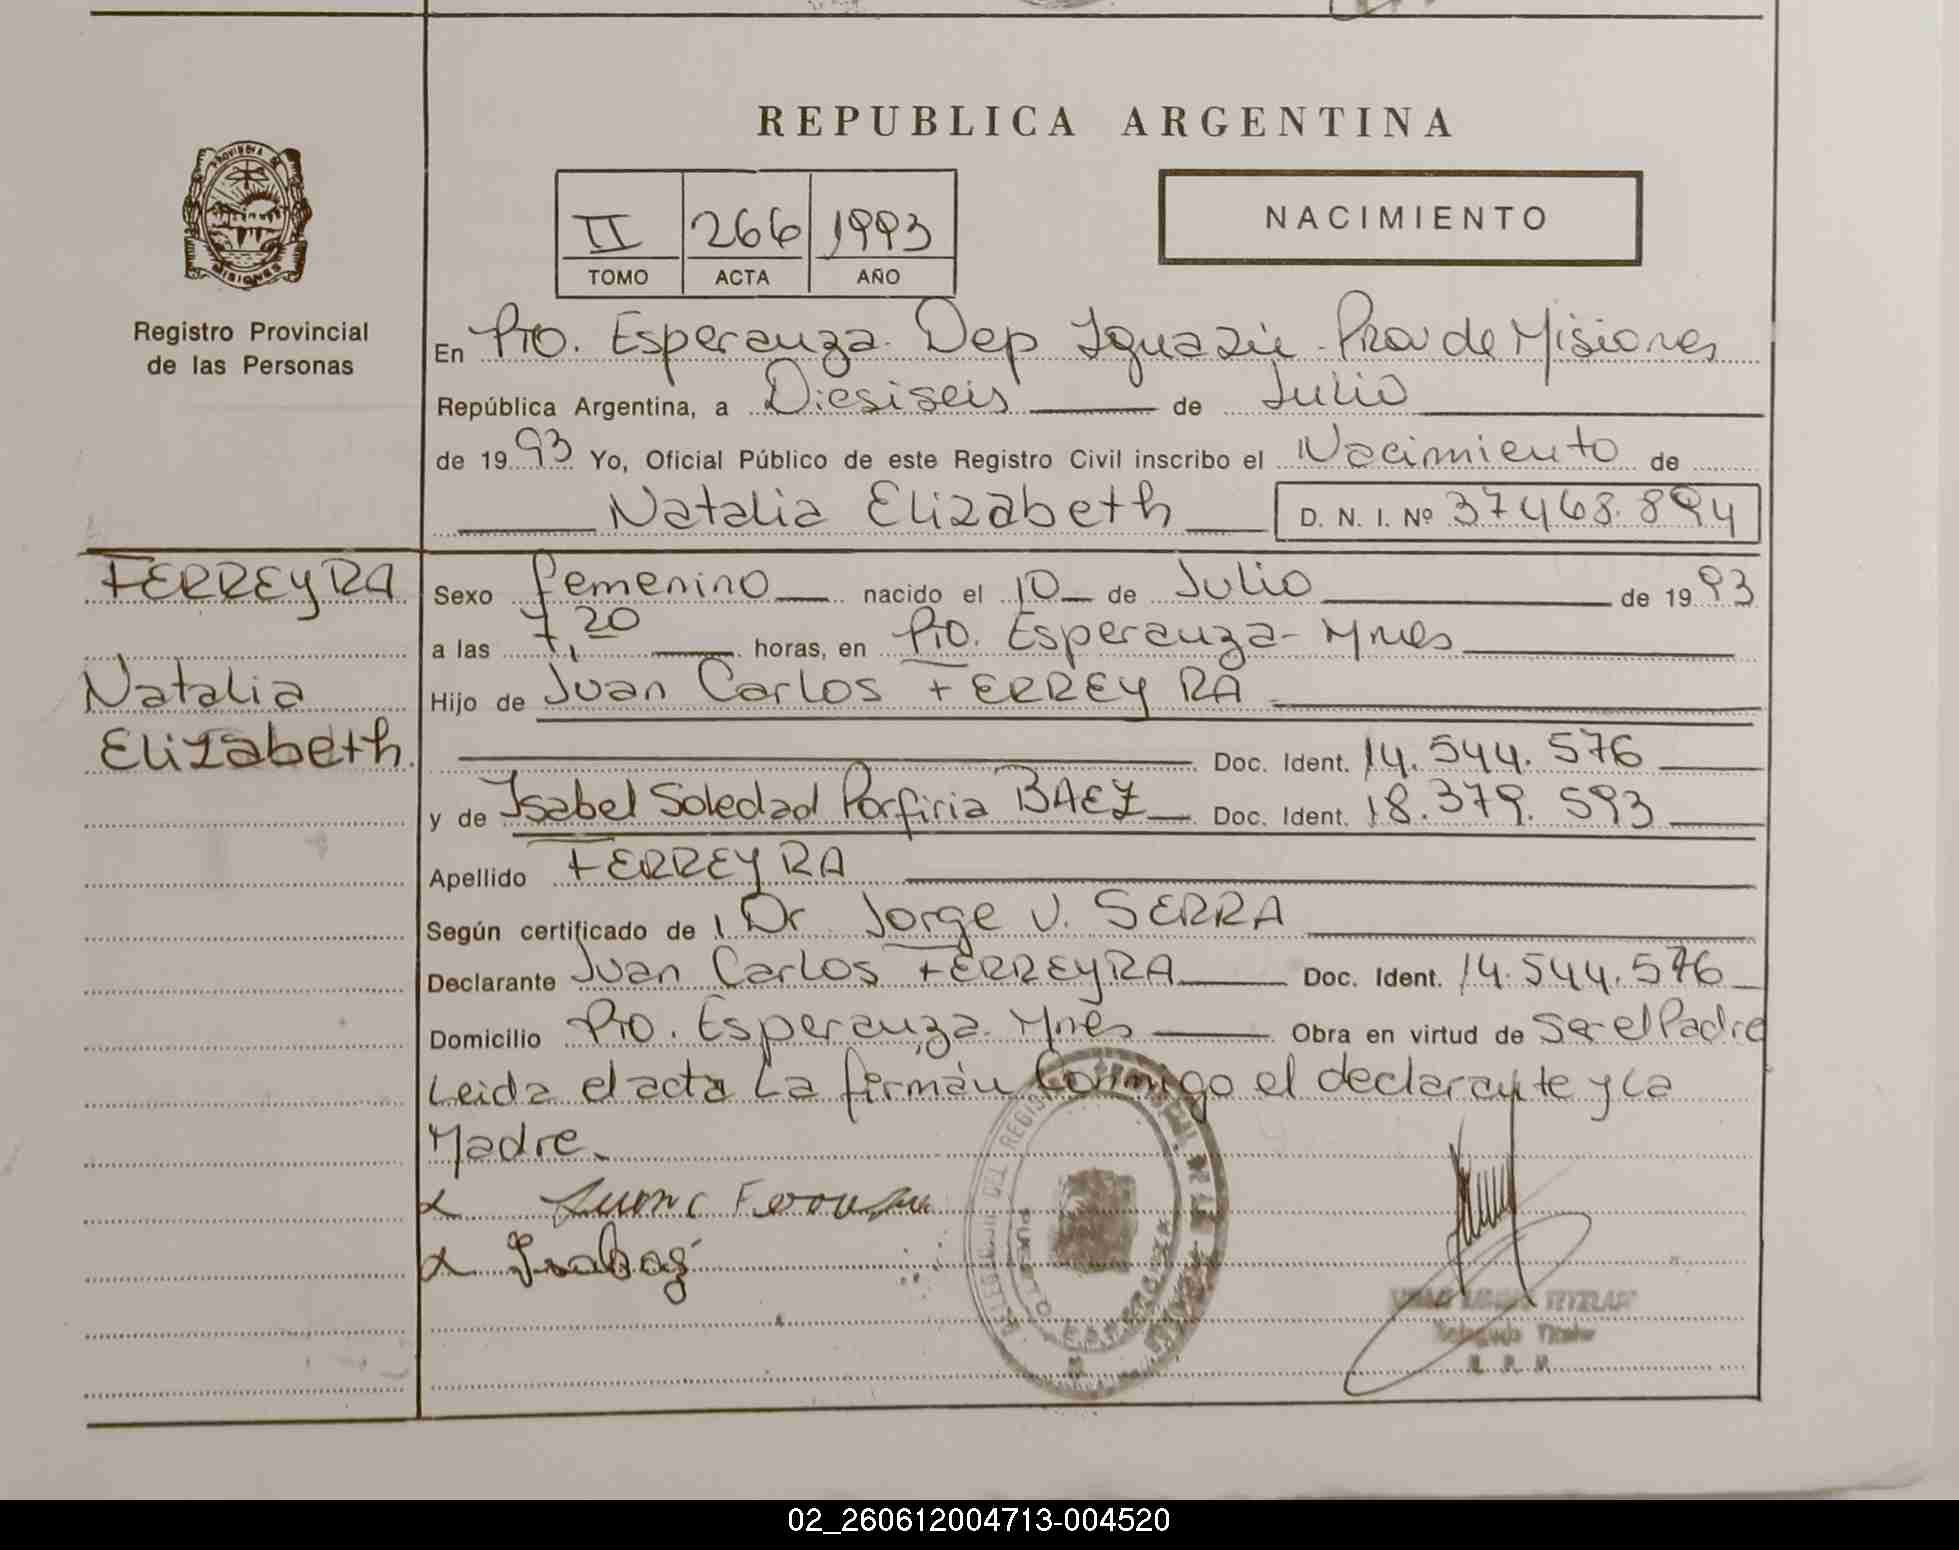 REPUBLICA ARGENTINA
PROVINCIA DE
MISIONES
Registro Provincial
de las Personas
II 266 1993
TOMO ACTA AÑO
NACIMIENTO
En Pto. Esperanza. Dep Iguazú - Prov de Misiones
República Argentina, a Diesiseis de Julio
de 1993 Yo, Oficial Público de este Registro Civil inscribo el Nacimiento de
Natalia Elizabeth D. N. I. Nº 37468.894
FERREYRA
Natalia
Elizabeth.
Sexo femenino nacido el 10 de Julio de 1993
a las 7,20 horas, en Pto. Esperanza - Mnes
Hijo de Juan Carlos FERREYRA
Doc. Ident. 14.544.576
y de Isabel Soledad Porfiria BAEZ Doc. Ident. 18.379.593
Apellido FERREYRA
Según certificado de Dr Jorge V. SERRA
Declarante Juan Carlos FERREYRA Doc. Ident. 14.544.576
Domicilio Pto. Esperanza. Mnes Obra en virtud de Ser el Padre
Leida el acta La firmán Conmigo el declarante y La
Madre.
DEL REGISTRO
PUERTO ESPERANZA
Titular
R. P. P.
02_260612004713-004520